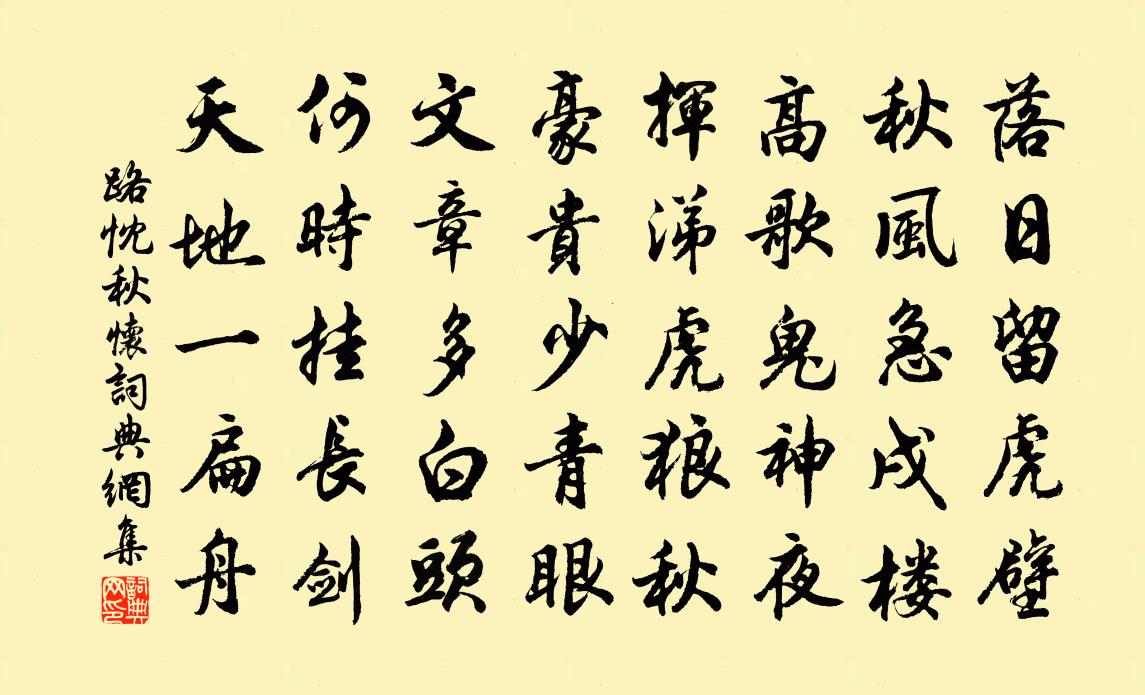 落日留虎壁
秋風急戍楼
高歌鬼神夜
揮涕虎狼秋
豪貴少青眼
文章多白頭
何時挂長剑
天地一扁舟
路忱秋懷詞典網集
詞典网印